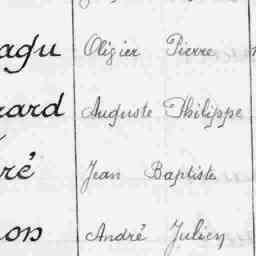 agu Oligier Pierre
rard Auguste Philippe
ré Jean Baptiste
on André Julien